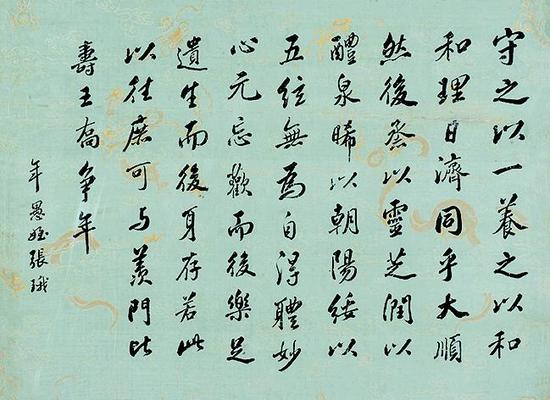 守之以一養之以和
和理日濟同乎大順
然後蒸以靈芝潤以
醴泉晞以朝陽綏以
五絃無為自得體妙
心元忘歡而後樂足
遺生而後身存若此
以往庶可与羨門比
壽王喬争年
年愚姪張珴